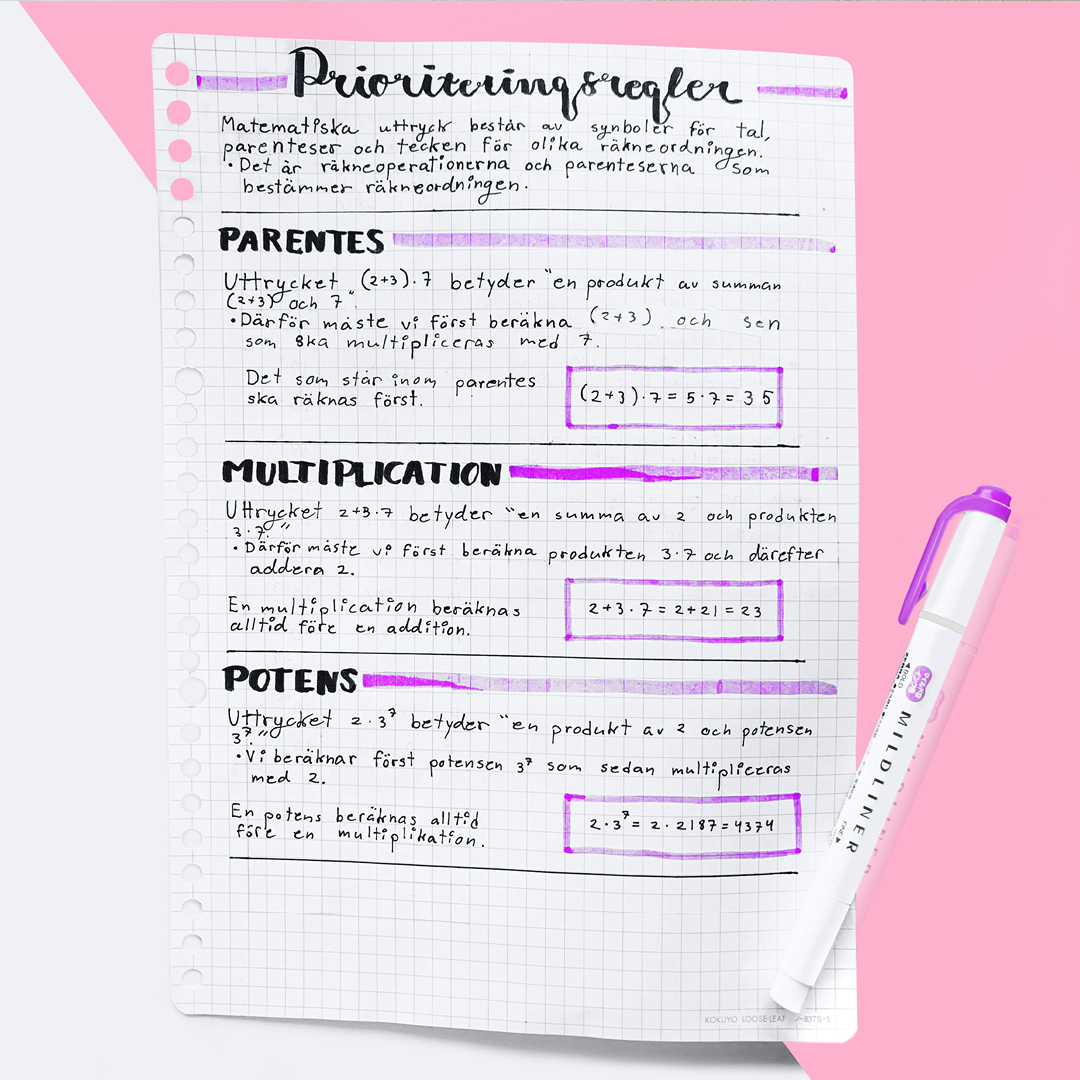 Prioriteringsregler
Matematiska uttryck består av symboler för tal,
parenteser och tecken för olika räkneordningen.
• Det är räkneoperationerna och parenteserna som
bestämmer räkneordningen.
PARENTES
Uttrycket (2+3)·7 betyder "en produkt av summan
(2+3) och 7".
• Därför måste vi först beräkna (2+3) och sen
som ska multipliceras med 7.
Det som står inom parentes
ska räknas först.
(2+3)·7=5·7=35
MULTIPLICATION
Uttrycket 2+3·7 betyder "en summa av 2 och produkten
3·7."
• Därför måste vi först beräkna produkten 3·7 och därefter
addera 2.
En multiplication beräknas
alltid före en addition.
2+3·7=2+21=23
POTENS
Uttrycket 2·3⁷ betyder "en produkt av 2 och potensen
3⁷."
• Vi beräknar först potensen 3⁷ som sedan multipliceras
med 2.
En potens beräknas alltid
före en multiplikation.
2·3⁷=2·2187=4374
MILDLINER
KOKUYO LOOSE-LEAF